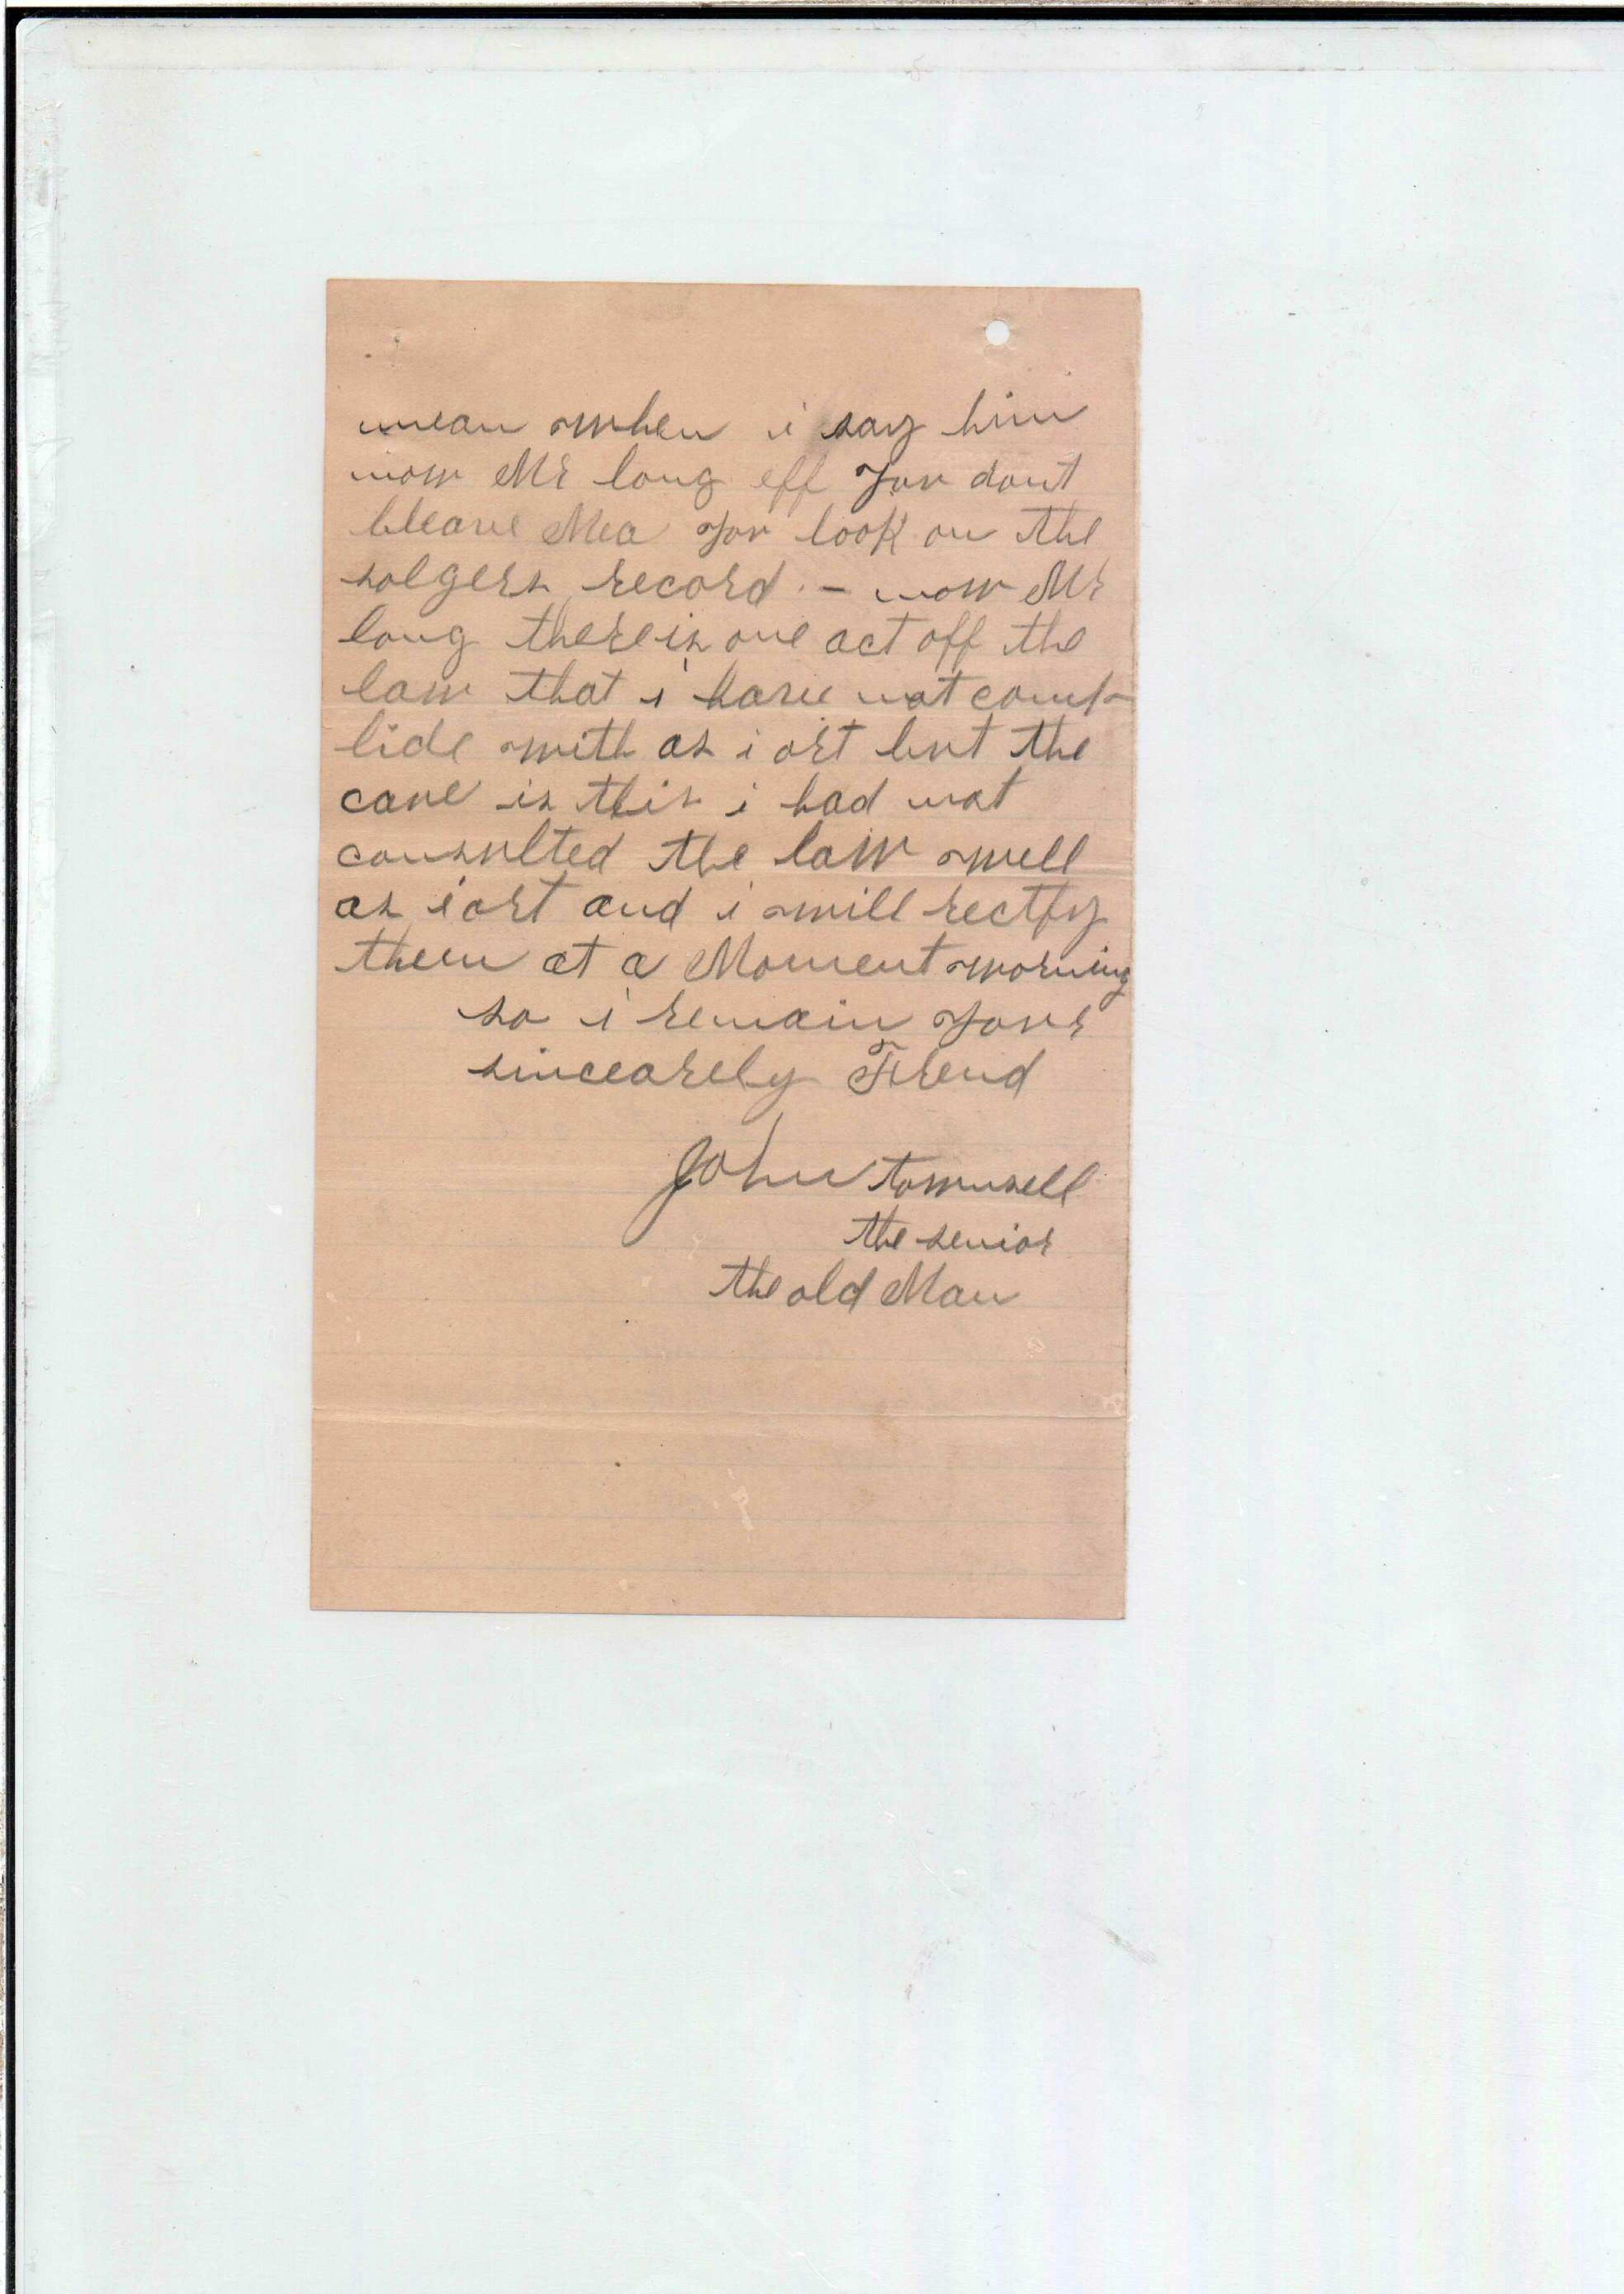 mean when i say him
now Mr long eff you dont
bleave Mea you look on the
solgers record. - now Mr
long there is one act off the
law that i have not comp
lide with as i ort but the
case is this i had not
consulted the law well
as i ort and i will rectfy
them at a Moment worning
so i remain your
sincearely Frend
John townsell
the senior
the old Man